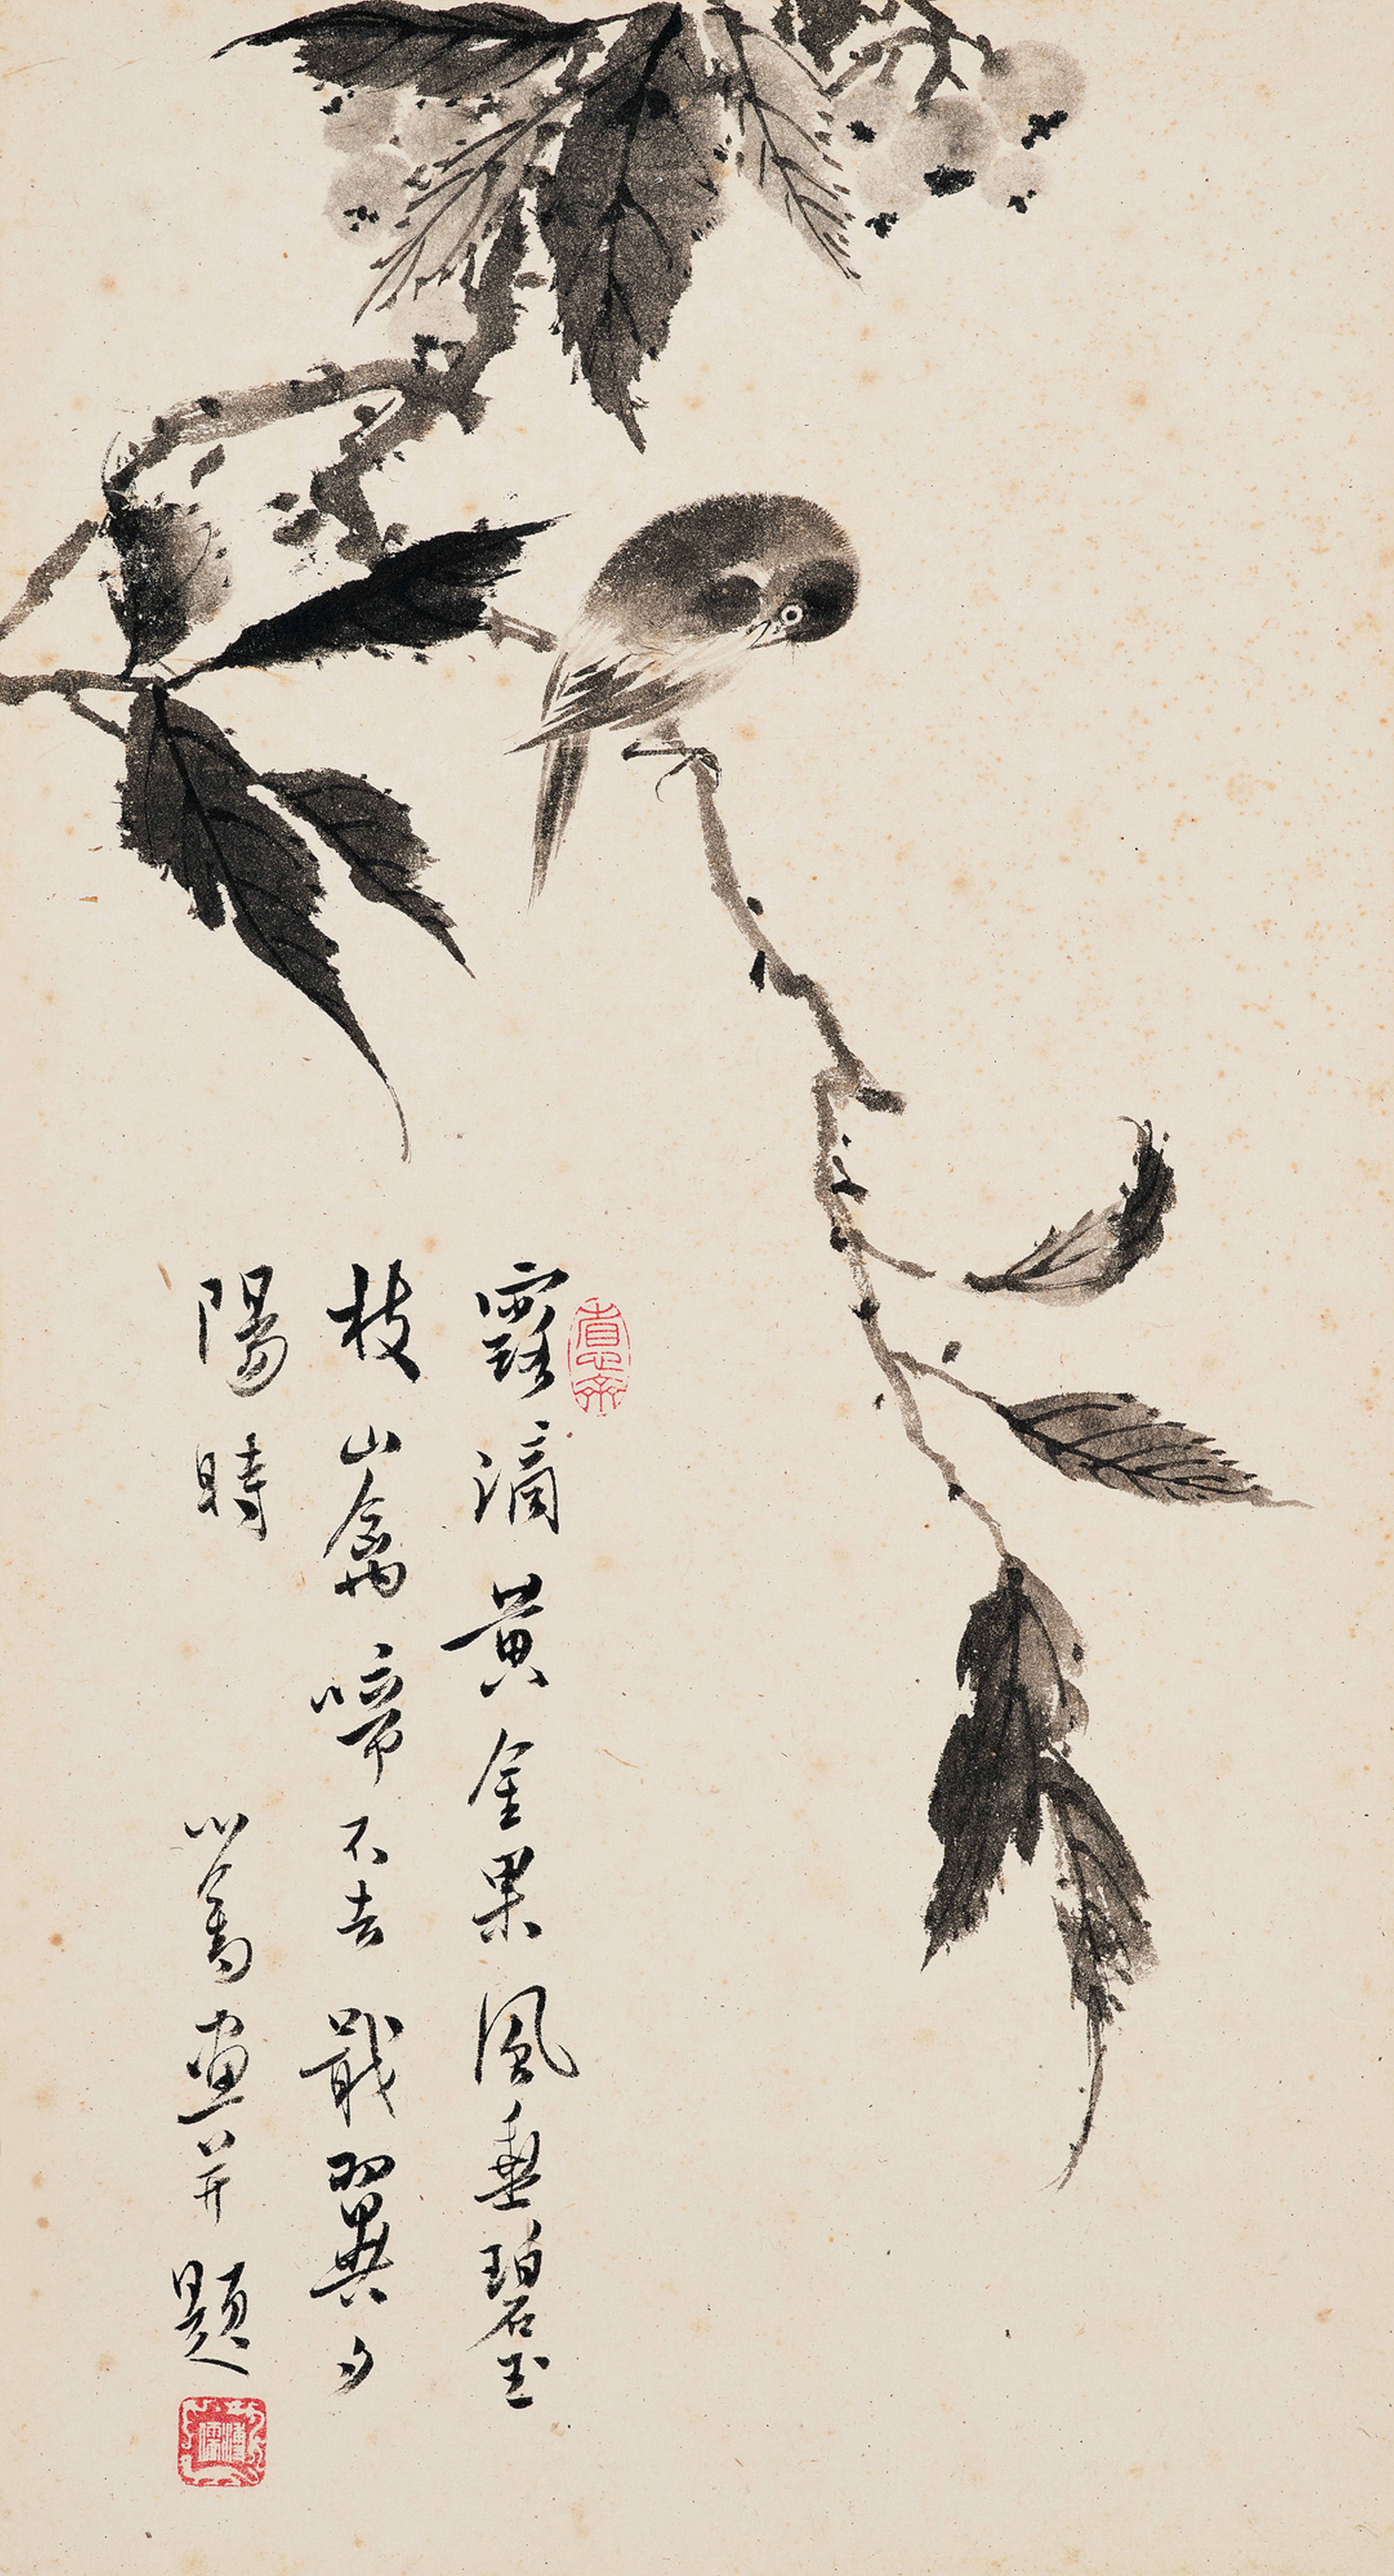 露滴黃金果風垂碧玉
枝山禽啼不去戢翼夕
陽時
心畬畫并題
溥儒